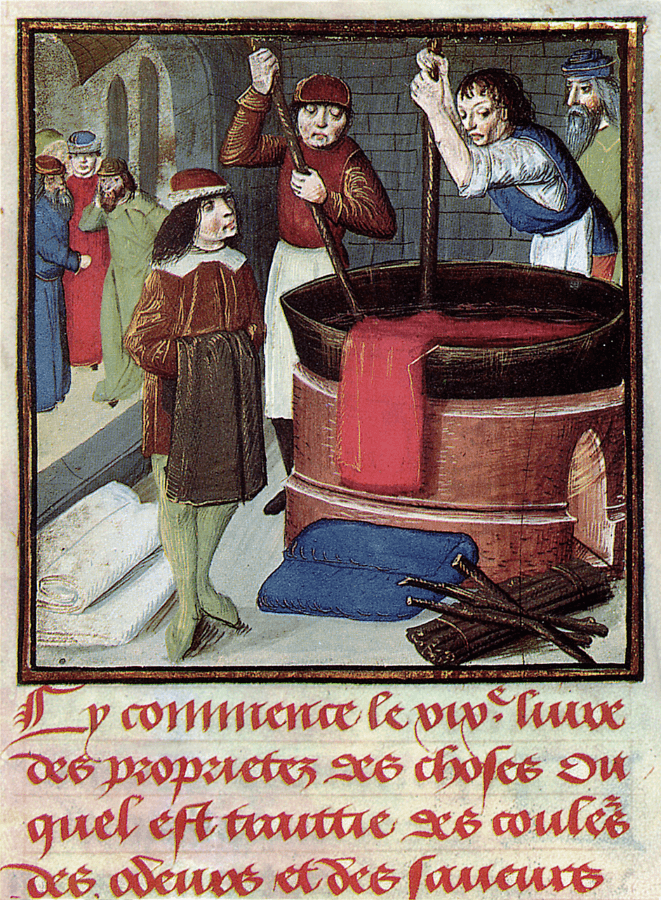 Cy commence le xixᵉ. liure
des proprietez des choses Ou
quel est traittie des coule's
des odeurs et des saueurs